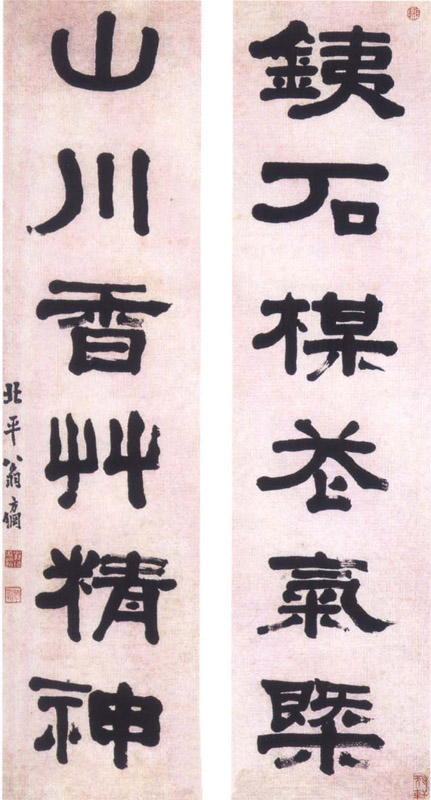 銕石楳花氣槩
山川香艸精神
北平翁方綱